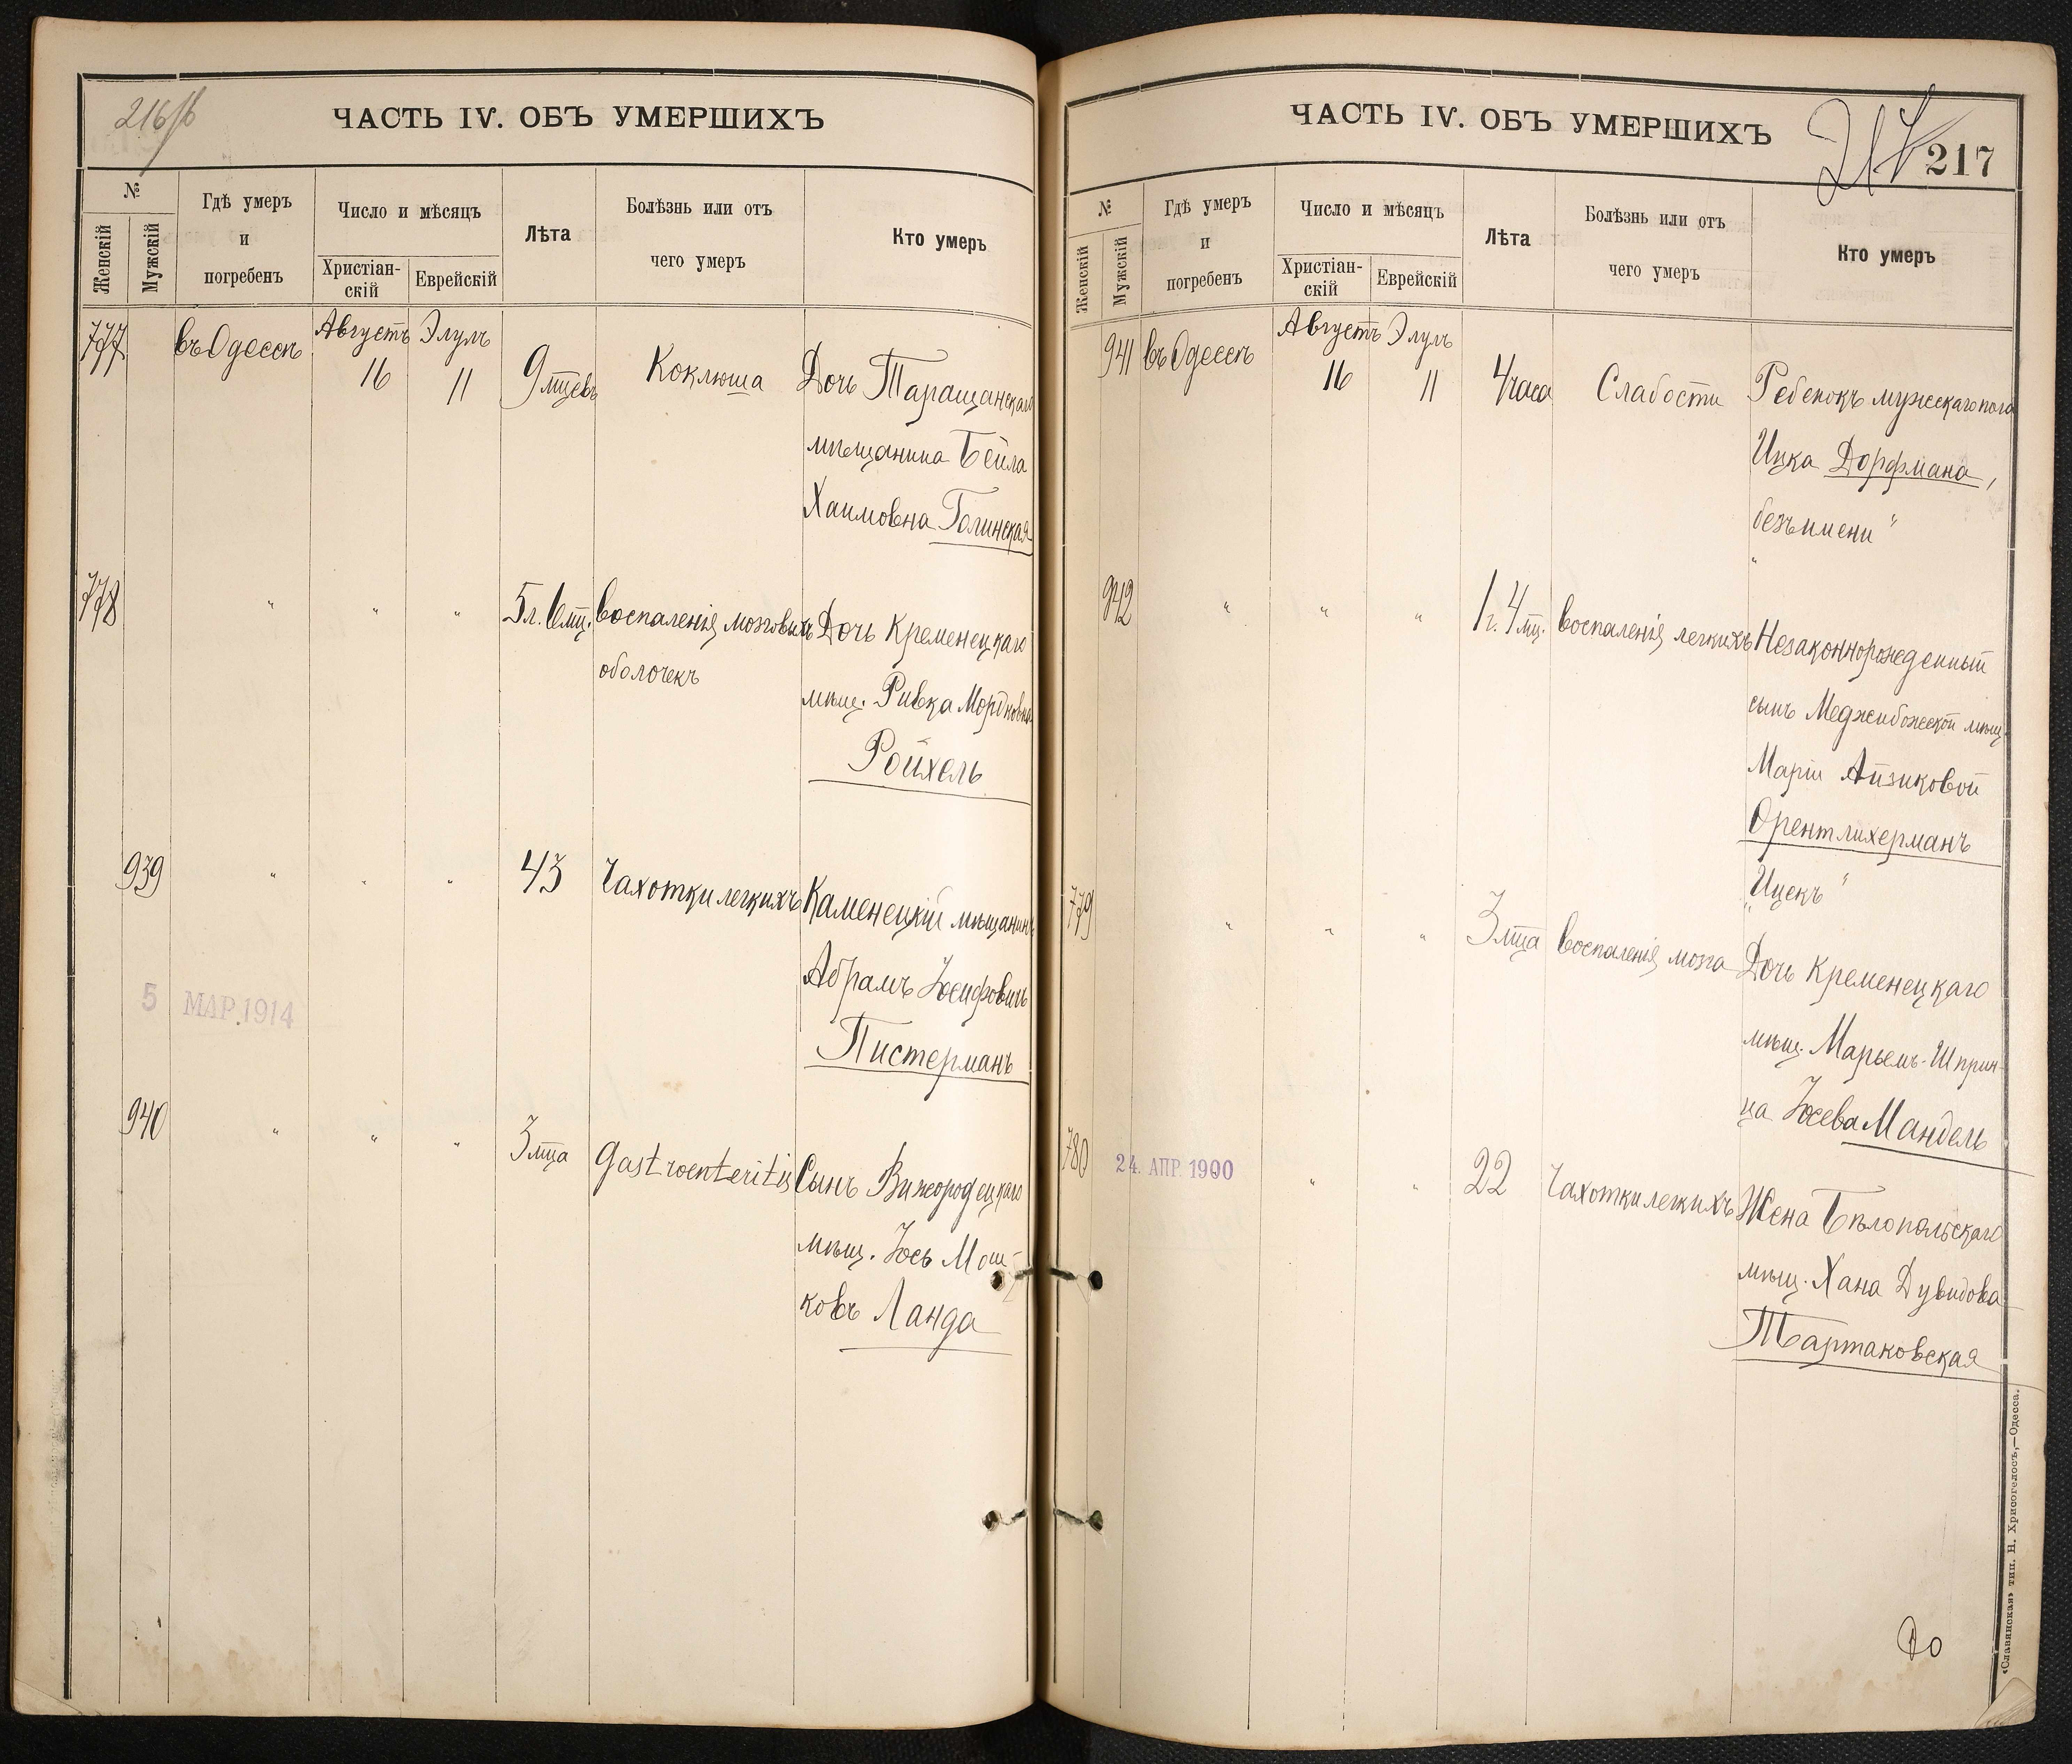 216/б
ЧАСТЬ IV. ОБЪ УМЕРШИХЪ
№
Женскій
Мужскій
Гдѣ умеръ
и
погребенъ
Число и мѣсяцъ
Христіан-
скій
Еврейскій
Лѣта
Болѣзнь или отъ
чего умеръ
Кто умеръ
777 въ Одессѣ Августъ Элулъ
16 11 9 мцевъ Коклюша Дочь Таращанскаго
мѣщанина Бейла
Хаимовна Голинская
778 " " " 5 г. 6 мц. воспаленія мозговыхъ Дочь Кременецкаго
оболочекъ
мѣщ. Ривка Мордковна
Ройхель
939 " " " 43 Чахотки легкихъ Каменецкій мѣщанинъ
Абрамъ Іосифовичъ
Пистерманъ
5 МАР.1914
940 " " " 3 мца Gastroenteritis Сынъ Вижгородецкаго
мѣщ. Іось Мош-
ковъ Ланда
ЧАСТЬ IV. ОБЪ УМЕРШИХЪ
217
217
№
Женскій
Мужскій
Гдѣ умеръ
и
погребенъ
Число и мѣсяцъ
Христіан-
скій
Еврейскій
Лѣта
Болѣзнь или отъ
чего умеръ
Кто умеръ
941 въ Одессѣ Августъ Элулъ
16 11 4 часа Слабости Ребенокъ мужескаго пола
Ицка Дорфмана,
"безъ имени"
942 " " " 1 г. 4 мц. воспаленія легкихъ Незаконнорожденный
сынъ Меджибожской мѣщ.
Маріи Айзиковой
Орентлихерманъ
"Ицекъ"
779 " " " 3 мца воспаленія мозга Дочь Кременецкаго
мѣщ. Марьемъ-Шприн-
ца Іосева Мандель
780 24. АПР. 1900 " " 22 Чахотки легкихъ Жена Бѣлопольскаго
мѣщ. Хана Дувидова
Тартаковская
«Славянская» тип. Н. Хрисогелосъ,—Одесса.